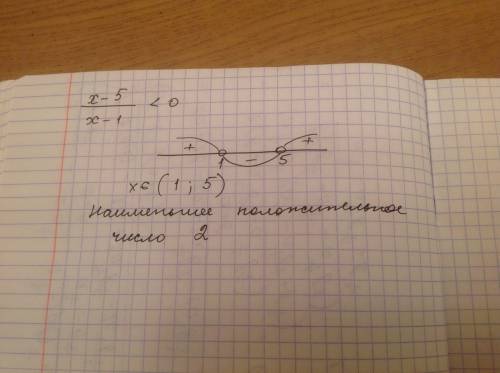 x-5
x-1 < 0
+ - +
1 5
x ∈ (1 ; 5)
Наименьшее положительное
число 2